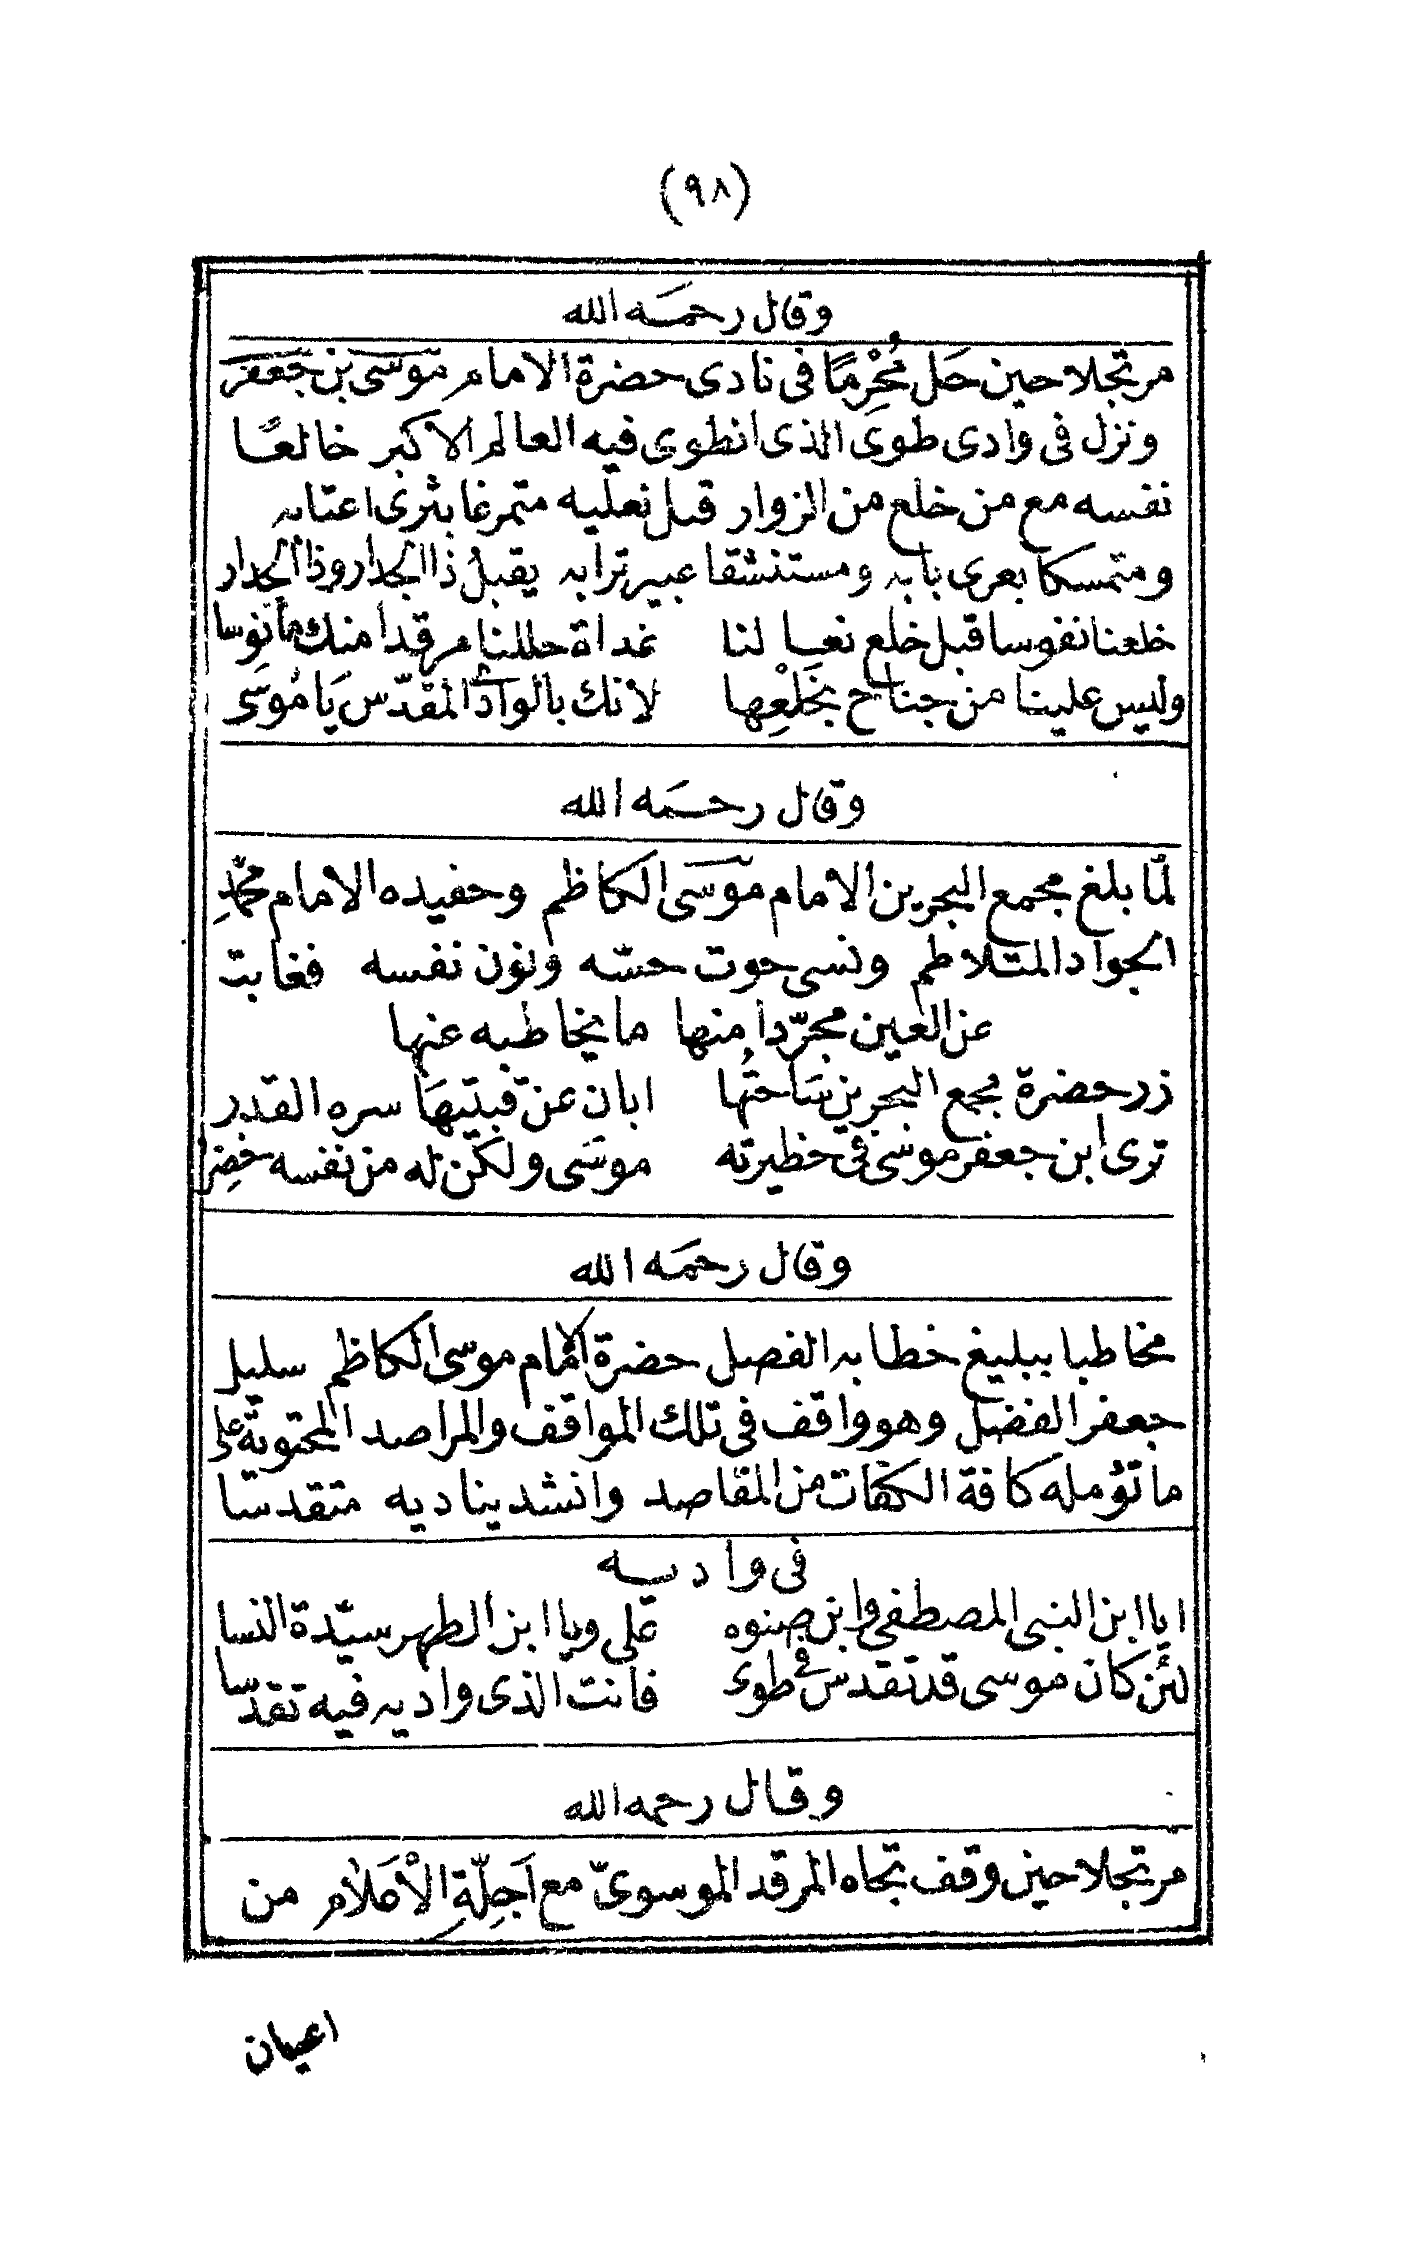 (٩٨)
وقال رحمه الله
مرتجلا حين حَل مُحْرِمًا في نادى حضرة الامام موسى بن جعفر
ونزل في وادى طوى الذى انطوى فيه العالم الاكبر خالعًا
نفسه مع من خلع من الزوار قبل نعليه متمرغا بثرى اعتابه
ومتمسكا بعرى بابه ومستنشقا عبير ترابه يقبل ذا الجدار وذا الجدار
خلعنا نفوسا قبل خلع نعالنا غداة حللنا مرقدا منك مأنوسا
وليس علينا من جناح بخَلْعِها لانك بالواد المقدّس يَا مُوسَى
وقال رحمه الله
لمّا بلغ مجمع البحرين الامام موسَى الكاظم وحفيده الامام محمّدِ
الجواد المتلاطم ونسى حوت حسّه ونون نفسه فغابت
عن العين مجرّدا منها ما يخاطبه عنها
زر حضرة مجمع البحرين سَاحتُها ابان عن قبتيهَا سره القدر
ترى ابن جعفر موسَى في خظيرته موسَى ولكن له من نفسه خضِر
وقال رحمَه الله
مخاطبا ببليغ خطابه الفصل حضرة الامام موسى الكاظم سليل
جعفر الفضل وهو واقف في تلك المواقف والمراصد المحتوية على
ما تؤمله كافة الكفات من المقاصد وانشد يناديه متقدسًا
في واديه
ايا ابن النبى المصطفى وابن صنوه على ويا ابن الطهر سيّدة النسا
لئن كان موسى قد تقدس في طوى فانت الذى واديه فيه تقدّسا
وقال رحمه الله
مرتجلا حين وقف تجاه المرقد الموسوىّ مع اَجِلّةِ الْاَعْلَام من
اعيان